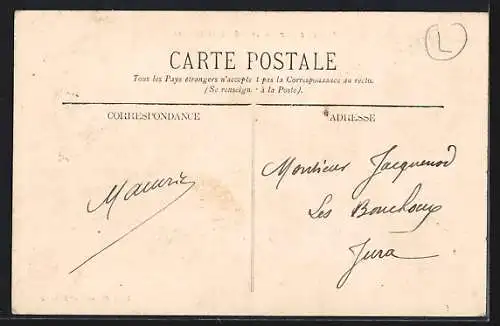 L
CARTE POSTALE
Tous les Pays étrangers n'accepte t pas la Correspondance au recto.
(Se renseign r à la Poste).
CORRESPONDANCE
ADRESSE
Maurice
Monsieur Jacquenod
Les Bouchoux
Jura